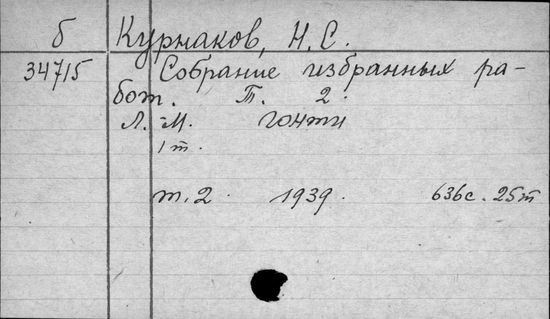 б Курнаков, Н. С.
34715 Собрание избранных ра-
бот. Т. 2.
Л.-М. гонти
1 т.
т. 2. 1939. 636с. 25т